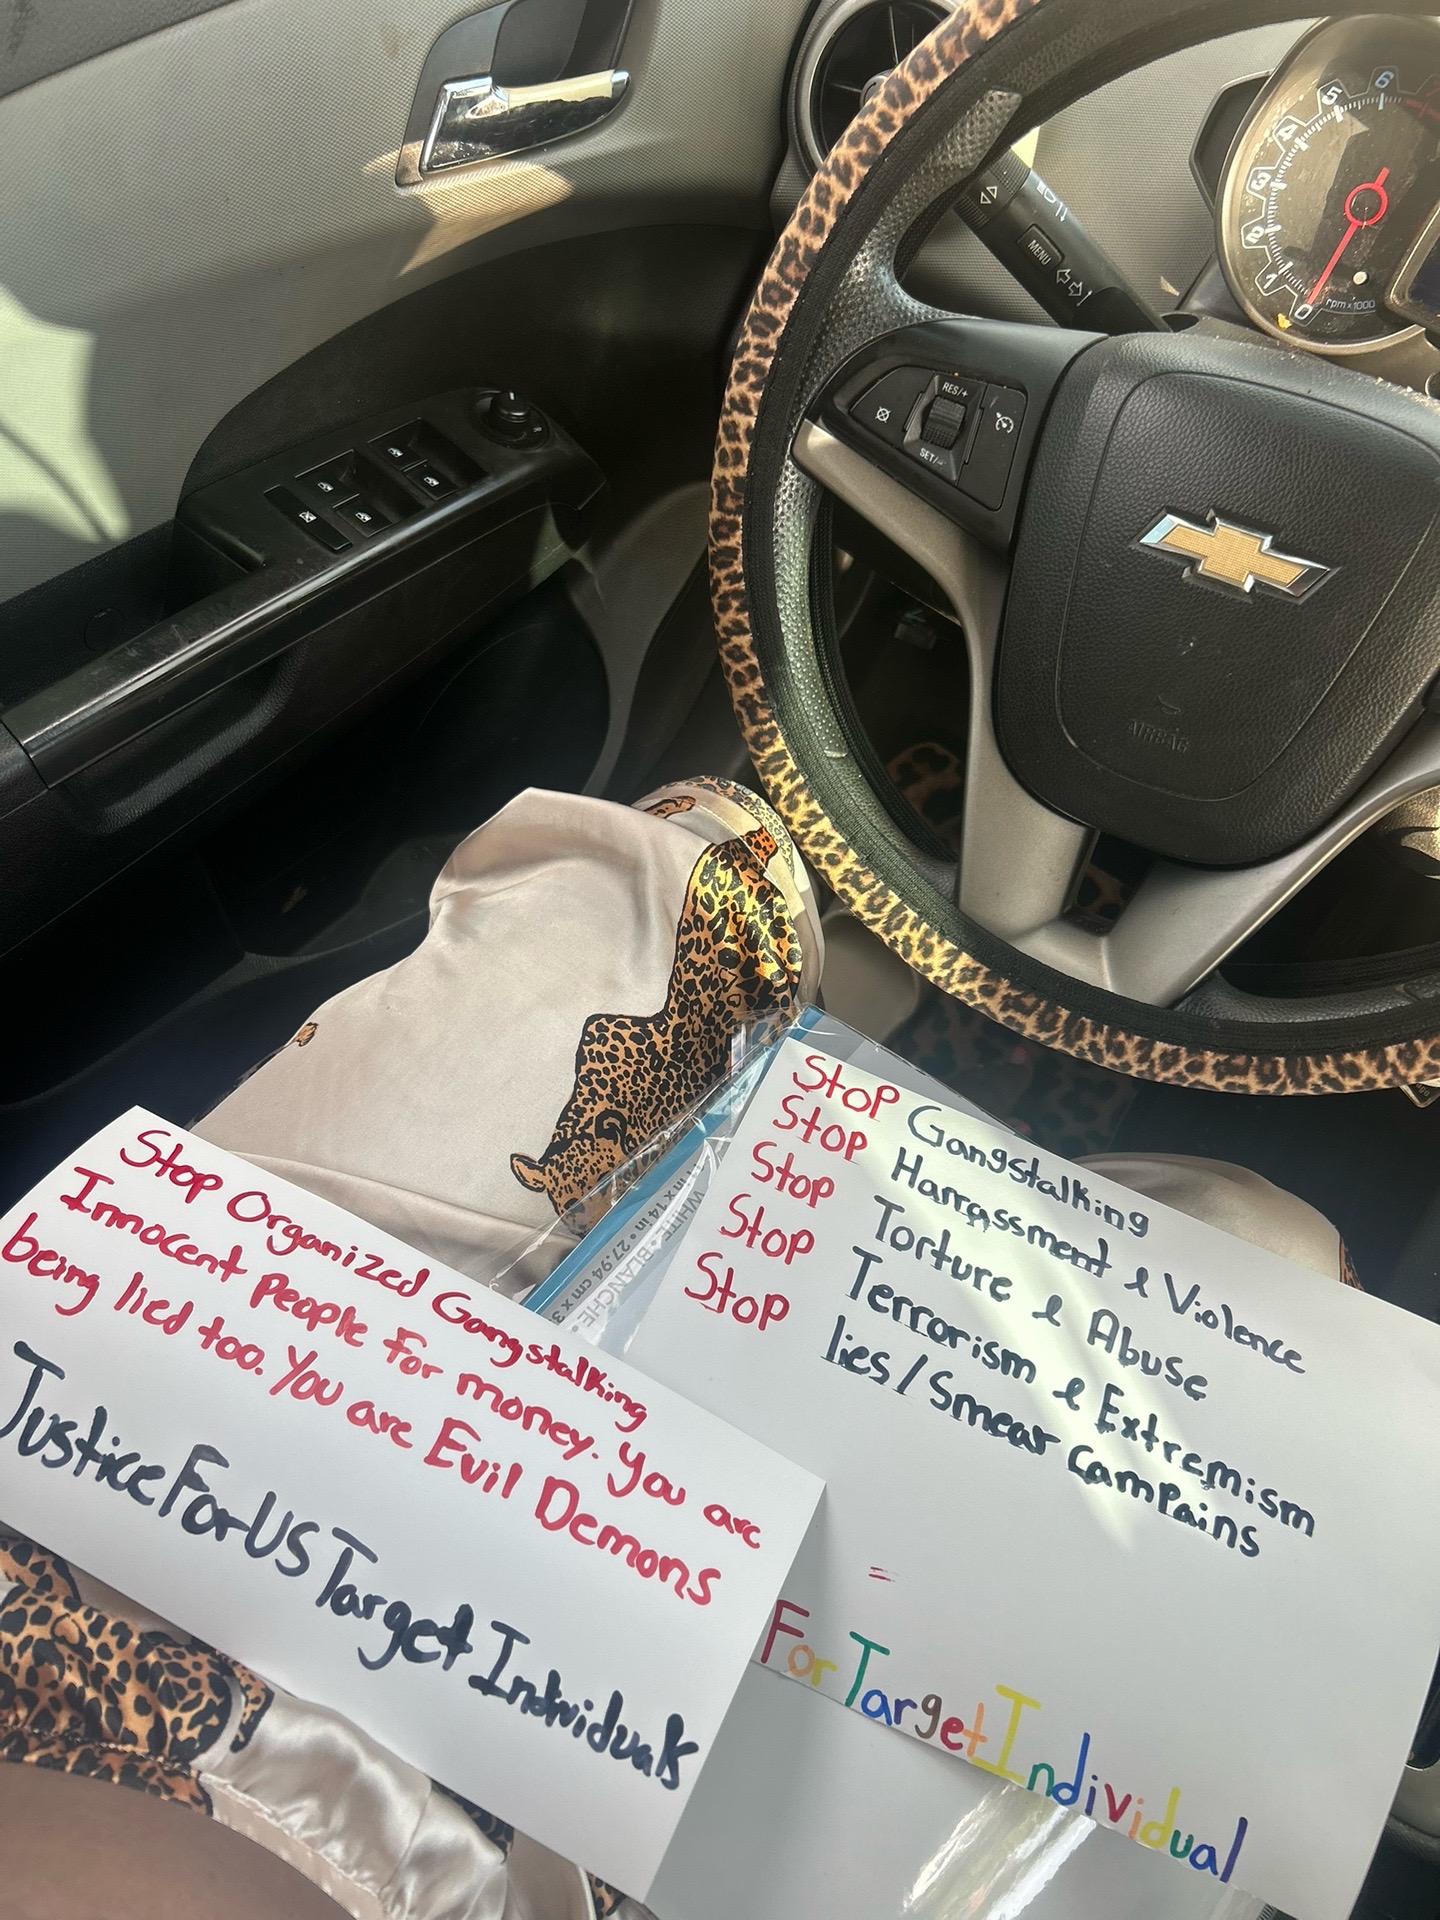 5
6
4
3
2
1
0
rpm x 1000
MENU
RES/+
SET/-
R
AIRBAG
WHITE • BLANCHE •
in x 14 in • 27.94 cm x 3
Stop Organized Gangstalking
Innocent People For money. You are
being lied too. You are Evil Demons
JusticeForUSTargetIndividuals
Stop Gangstalking
Stop Harrassment & Violence
Stop Torture & Abuse
Stop Terrorism & Extremism
Stop lies/Smear Campains
=
ForTargetIndividual